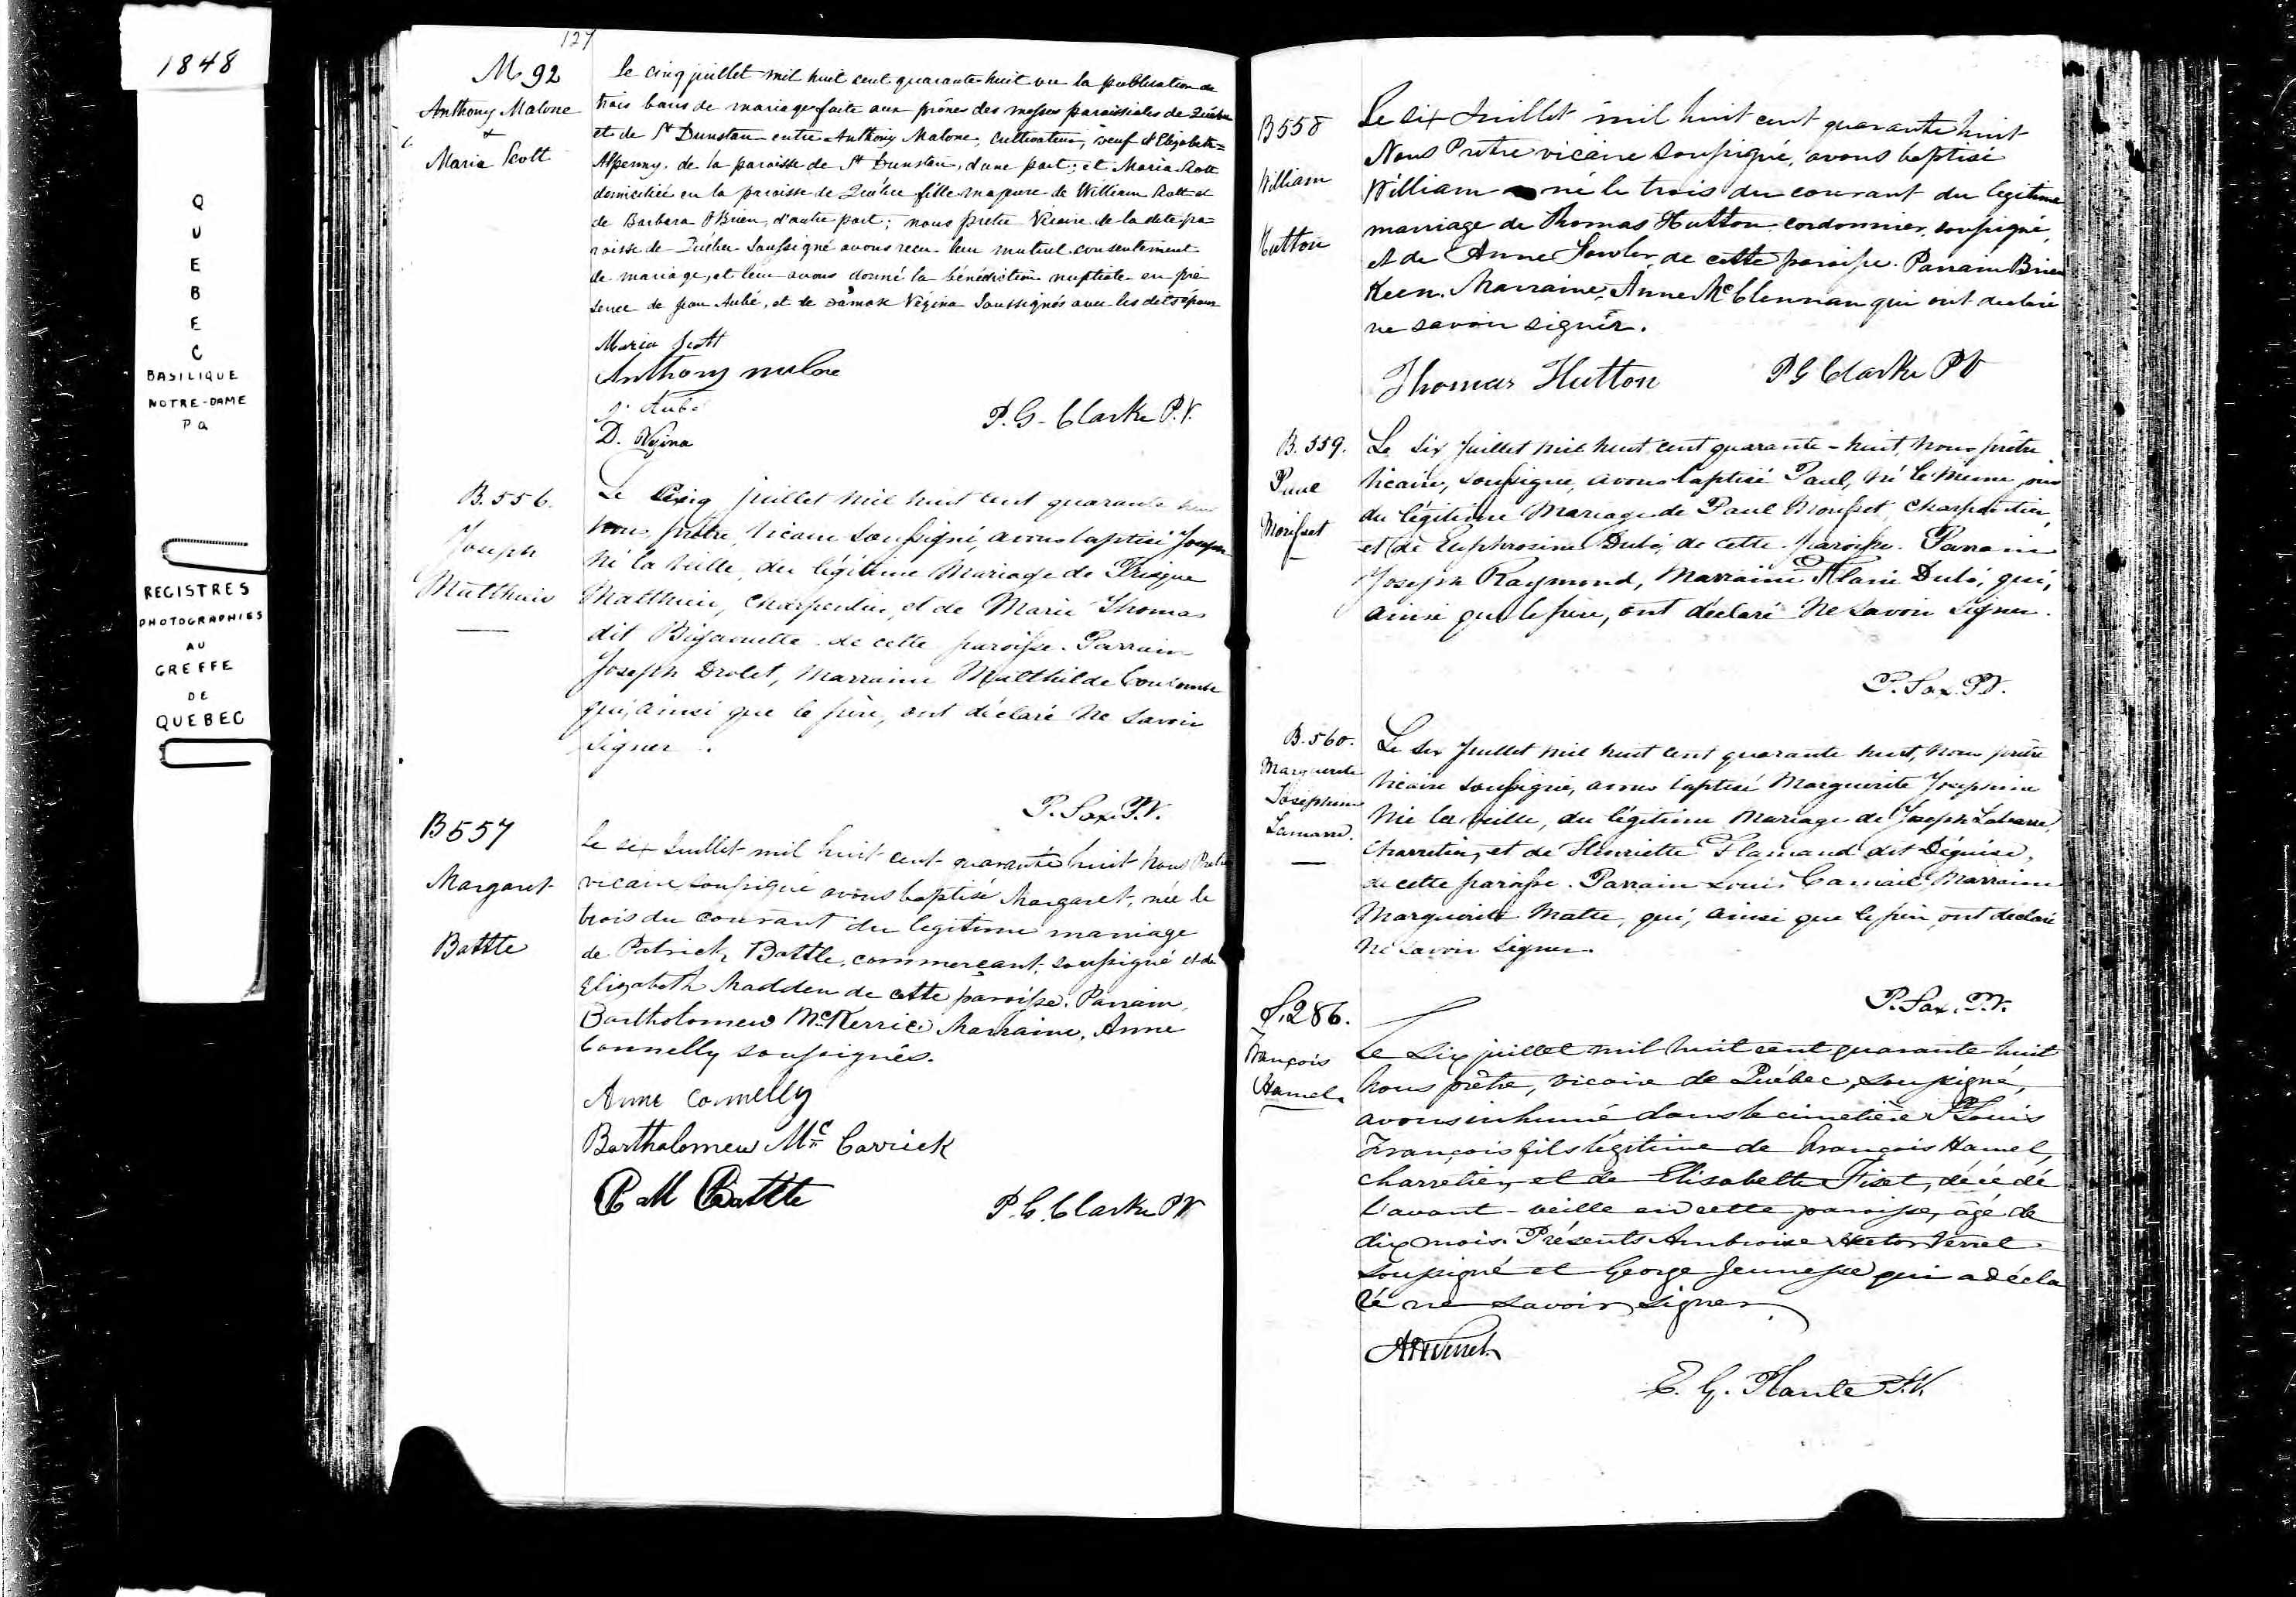 1848
QUEBEC
BASILIQUE
NOTRE-DAME
Pa
REGISTRES
PHOTOGRAPHIES
AU
GREFFE
DE
QUEBEC
127
M 92
Anthony Malone
&
Maria Scott
Le cinq juillet mil huit cent quarante-huit vu la publication de
trois bans de mariage faite aux prônes des messes paroissiales de Québec
et de St Dunstan entre Anthony Malone, cultivateur, veuf d'Elizabeth
Alpenny, de la paroisse de St Dunstan, d'une part; et Maria Scott
domiciliée en la paroisse de Québec fille majeure de William Scott et
de Barbara O'Brien, d'autre part; nous prêtre vicaire de la dite pa=
roisse de Québec soussigné avons recu leur mutuel consentement
de mariage, et leur avons donné la bénédiction nuptiale en pré
sence de Jean Aubé, et de Damase Vézina soussignés avec les dits époux
Maria Scott
Anthony malone
J. Aubé
D. Vézina
P. G. Clarke P.V.
B. 556.
Joseph
Matthieu
Le Cinq juillet mil huit cent quarante huit
nous prêtre, vicaire soussigné, avons baptisé Joseph
né la veille, du légitime Mariage de Prisque
Matthieu, charpentier, et de Marie Thomas
dit Bigaouette de cette paroisse. Parrain
Joseph Drolet, Marraine Matthilde Coulombe
qui, ainsi que le père, ont déclaré ne savoir
signer.
P. Sax. P.V.
B 557
Margaret
Battle
Le six Juillet mil huit cent quarante huit Nous Prêtre
vicaire soussigné avons baptisé Margaret, née le
trois du courant du legitime mariage
de Patrick Battle, commerçant, soussigné et de
Elizabeth Madden de cette paroisse. Parrain,
Bartholomew McKerrice Marraine, Anne
Connelly soussignés.
Anne Connelly
Bartholomew Mc Carrick
P M Battle
P. G. Clarke PV
B 558
William
Hutton
Le six Juillet mil huit cent quarante huit
Nous Prêtre vicaire soussigné, avons baptisé
William né le trois du courant du legitime
marriage de Thomas Hutton cordonnier, soussigné,
et de Anne Fowler, de cette paroisse. Parrain Brien
Keen. Marraine, Anne McClennan qui ont declaré
ne savoir signer.
Thomas Hutton
P G Clarke PV
B. 559.
Paul
Morisset
Le Six Juillet mil huit cent quarante-huit, nous prêtre
Vicaire, soussigné, avons baptisé Paul, né le même jour
du légitime Mariage de Paul Morisset, charpentier,
et de Euphrosine Dubé, de cette paroisse. Parrain
Joseph Raymond, Marraine Flavie Dubé, qui,
ainsi que le père, ont déclaré ne savoir signer.
P. Sax. P.V.
B. 560.
Marguerite
Joséphine
Lamarre.
Le Six Juillet mil huit cent quarante huit, nous prêtre
Vicaire soussigné, avons baptisé Marguerite Josephine
née la veille, du légitime Mariage de Joseph
Charretier, et de Henriette Flamand dit
de cette paroisse. Parrain Louis Marraine
Marguerite Matte, qui, ainsi que le père, ont declaré
ne savoir signer.
P. Sax. P.V.
S. 286.
François
Hamel.
Le six juillet mil huit cent quarante-huit
nous prêtre, vicaire de Québec, soussigné,
avons inhumé dans le cimetière St Louis
François fils légitime de François Hamel,
charretier, et de Elisabette Fiset, décédé
l'avant-veille en cette paroisse, âgé de
dix mois. Présents Ambroise Verret
soussigné et George Jeunesse qui a décla
ré ne savoir signer.
E. G. Plante P.V.